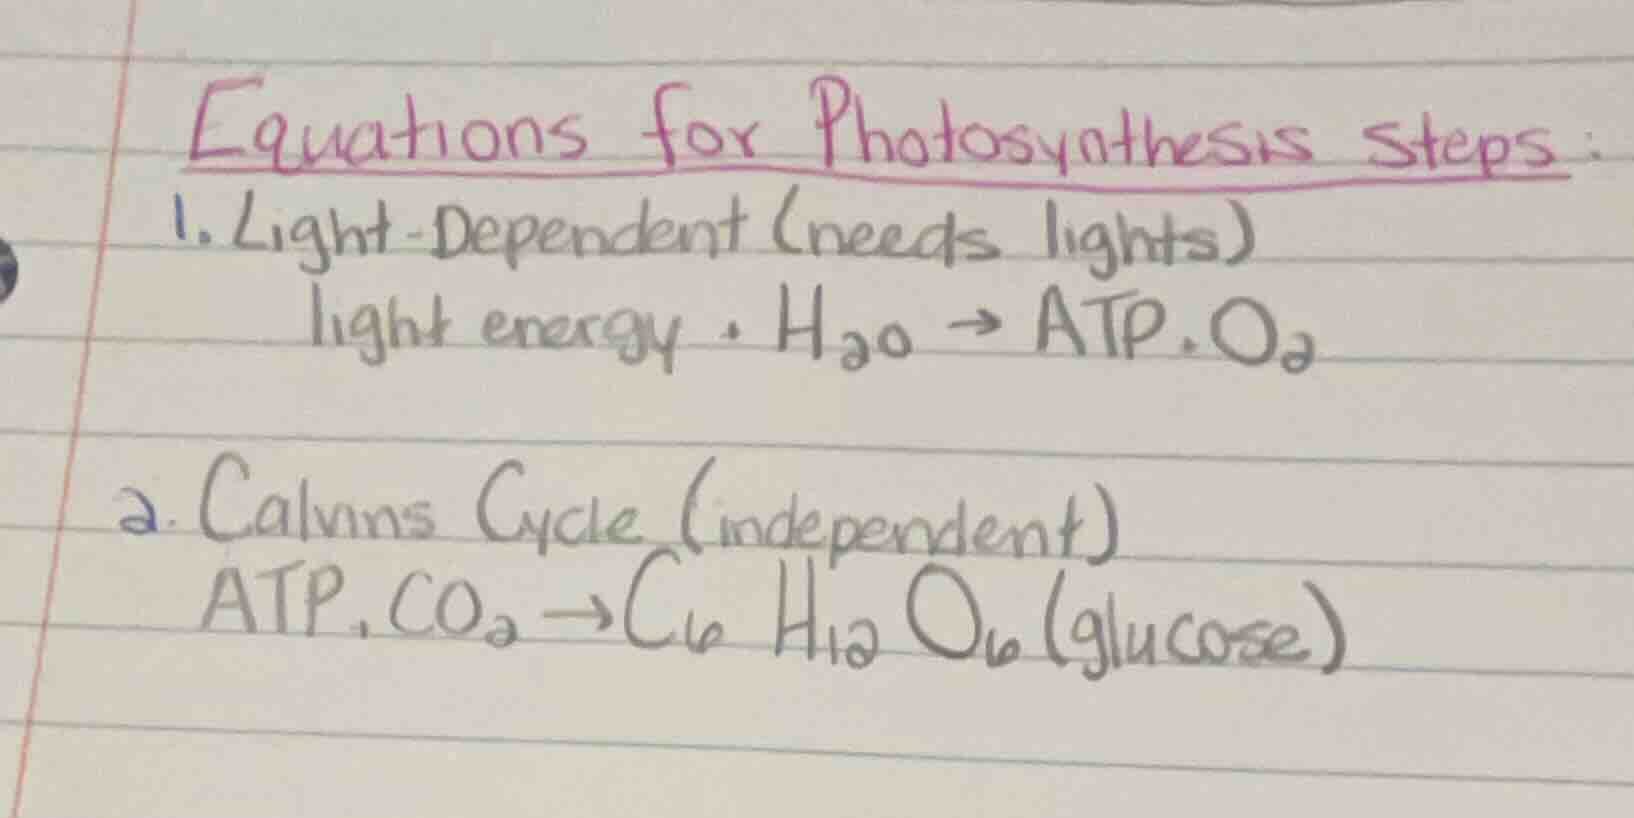 Equations for Photosynthesis Steps:
1. Light-Dependent (needs lights)
light energy · H₂O → ATP . O₂
2. Calvins Cycle (independent)
ATP . CO₂ → C₆ H₁₂ O₆ (glucose)